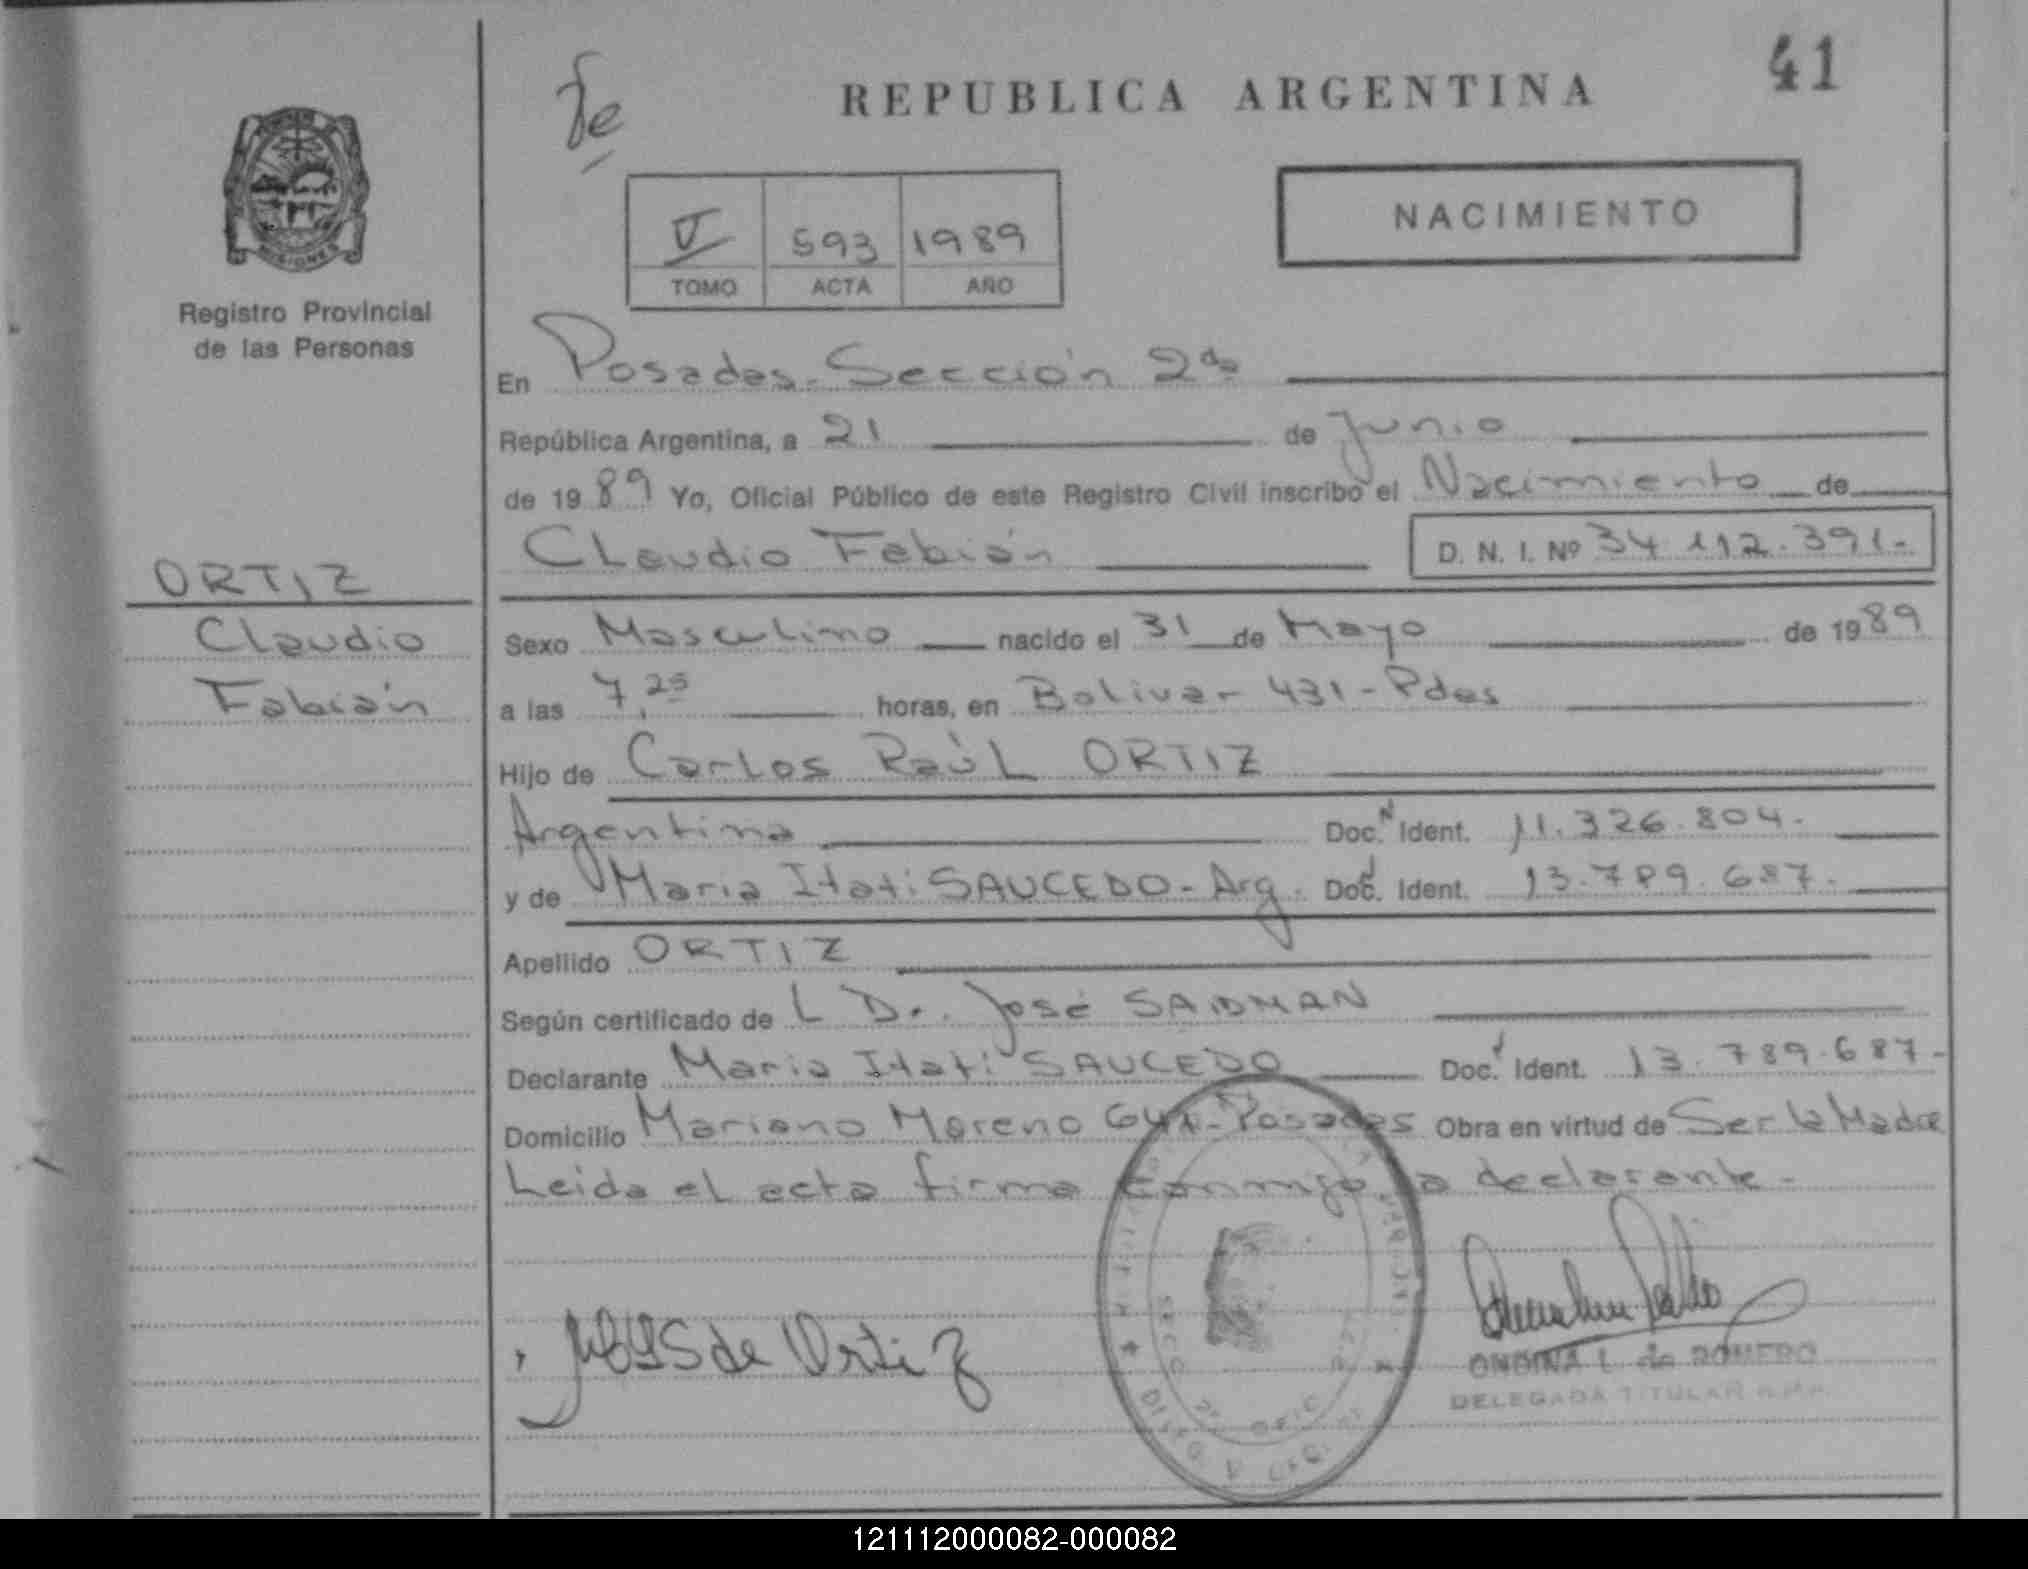 41
REPUBLICA ARGENTINA
NACIMIENTO
V 593 1989
TOMO ACTA AÑO
MISIONES
Registro Provincial
de las Personas
ORTIZ
Claudio
Fabián
En Posadas - Sección 2da
República Argentina, a 21 de Junio
de 1989 Yo, Oficial Público de este Registro Civil inscribo el Nacimiento de
Claudio Fabián D. N. I. Nº 34.112.391.-
Sexo Masculino nacido el 31 de Mayo de 1989
a las 7,25 horas, en Bolivar 431 - Pdas
Hijo de Carlos Raúl ORTIZ
Argentina Doc. N Ident. 11.326.804.
y de Maria Itatí SAUCEDO - Arg. Doc. Ident. 13.789.687.-
Apellido ORTIZ
Según certificado de L Dr. José SAIDMAN
Declarante Maria Itatí SAUCEDO Doc. Ident. 13.789.687-
Domicilio Mariano Moreno Posadas Obra en virtud de Ser la Madre
Leida el acta firma conmigo la declarante.-
de Ortiz
ONDINA L. de ROMERO
DELEGADA TITULAR
121112000082-000082